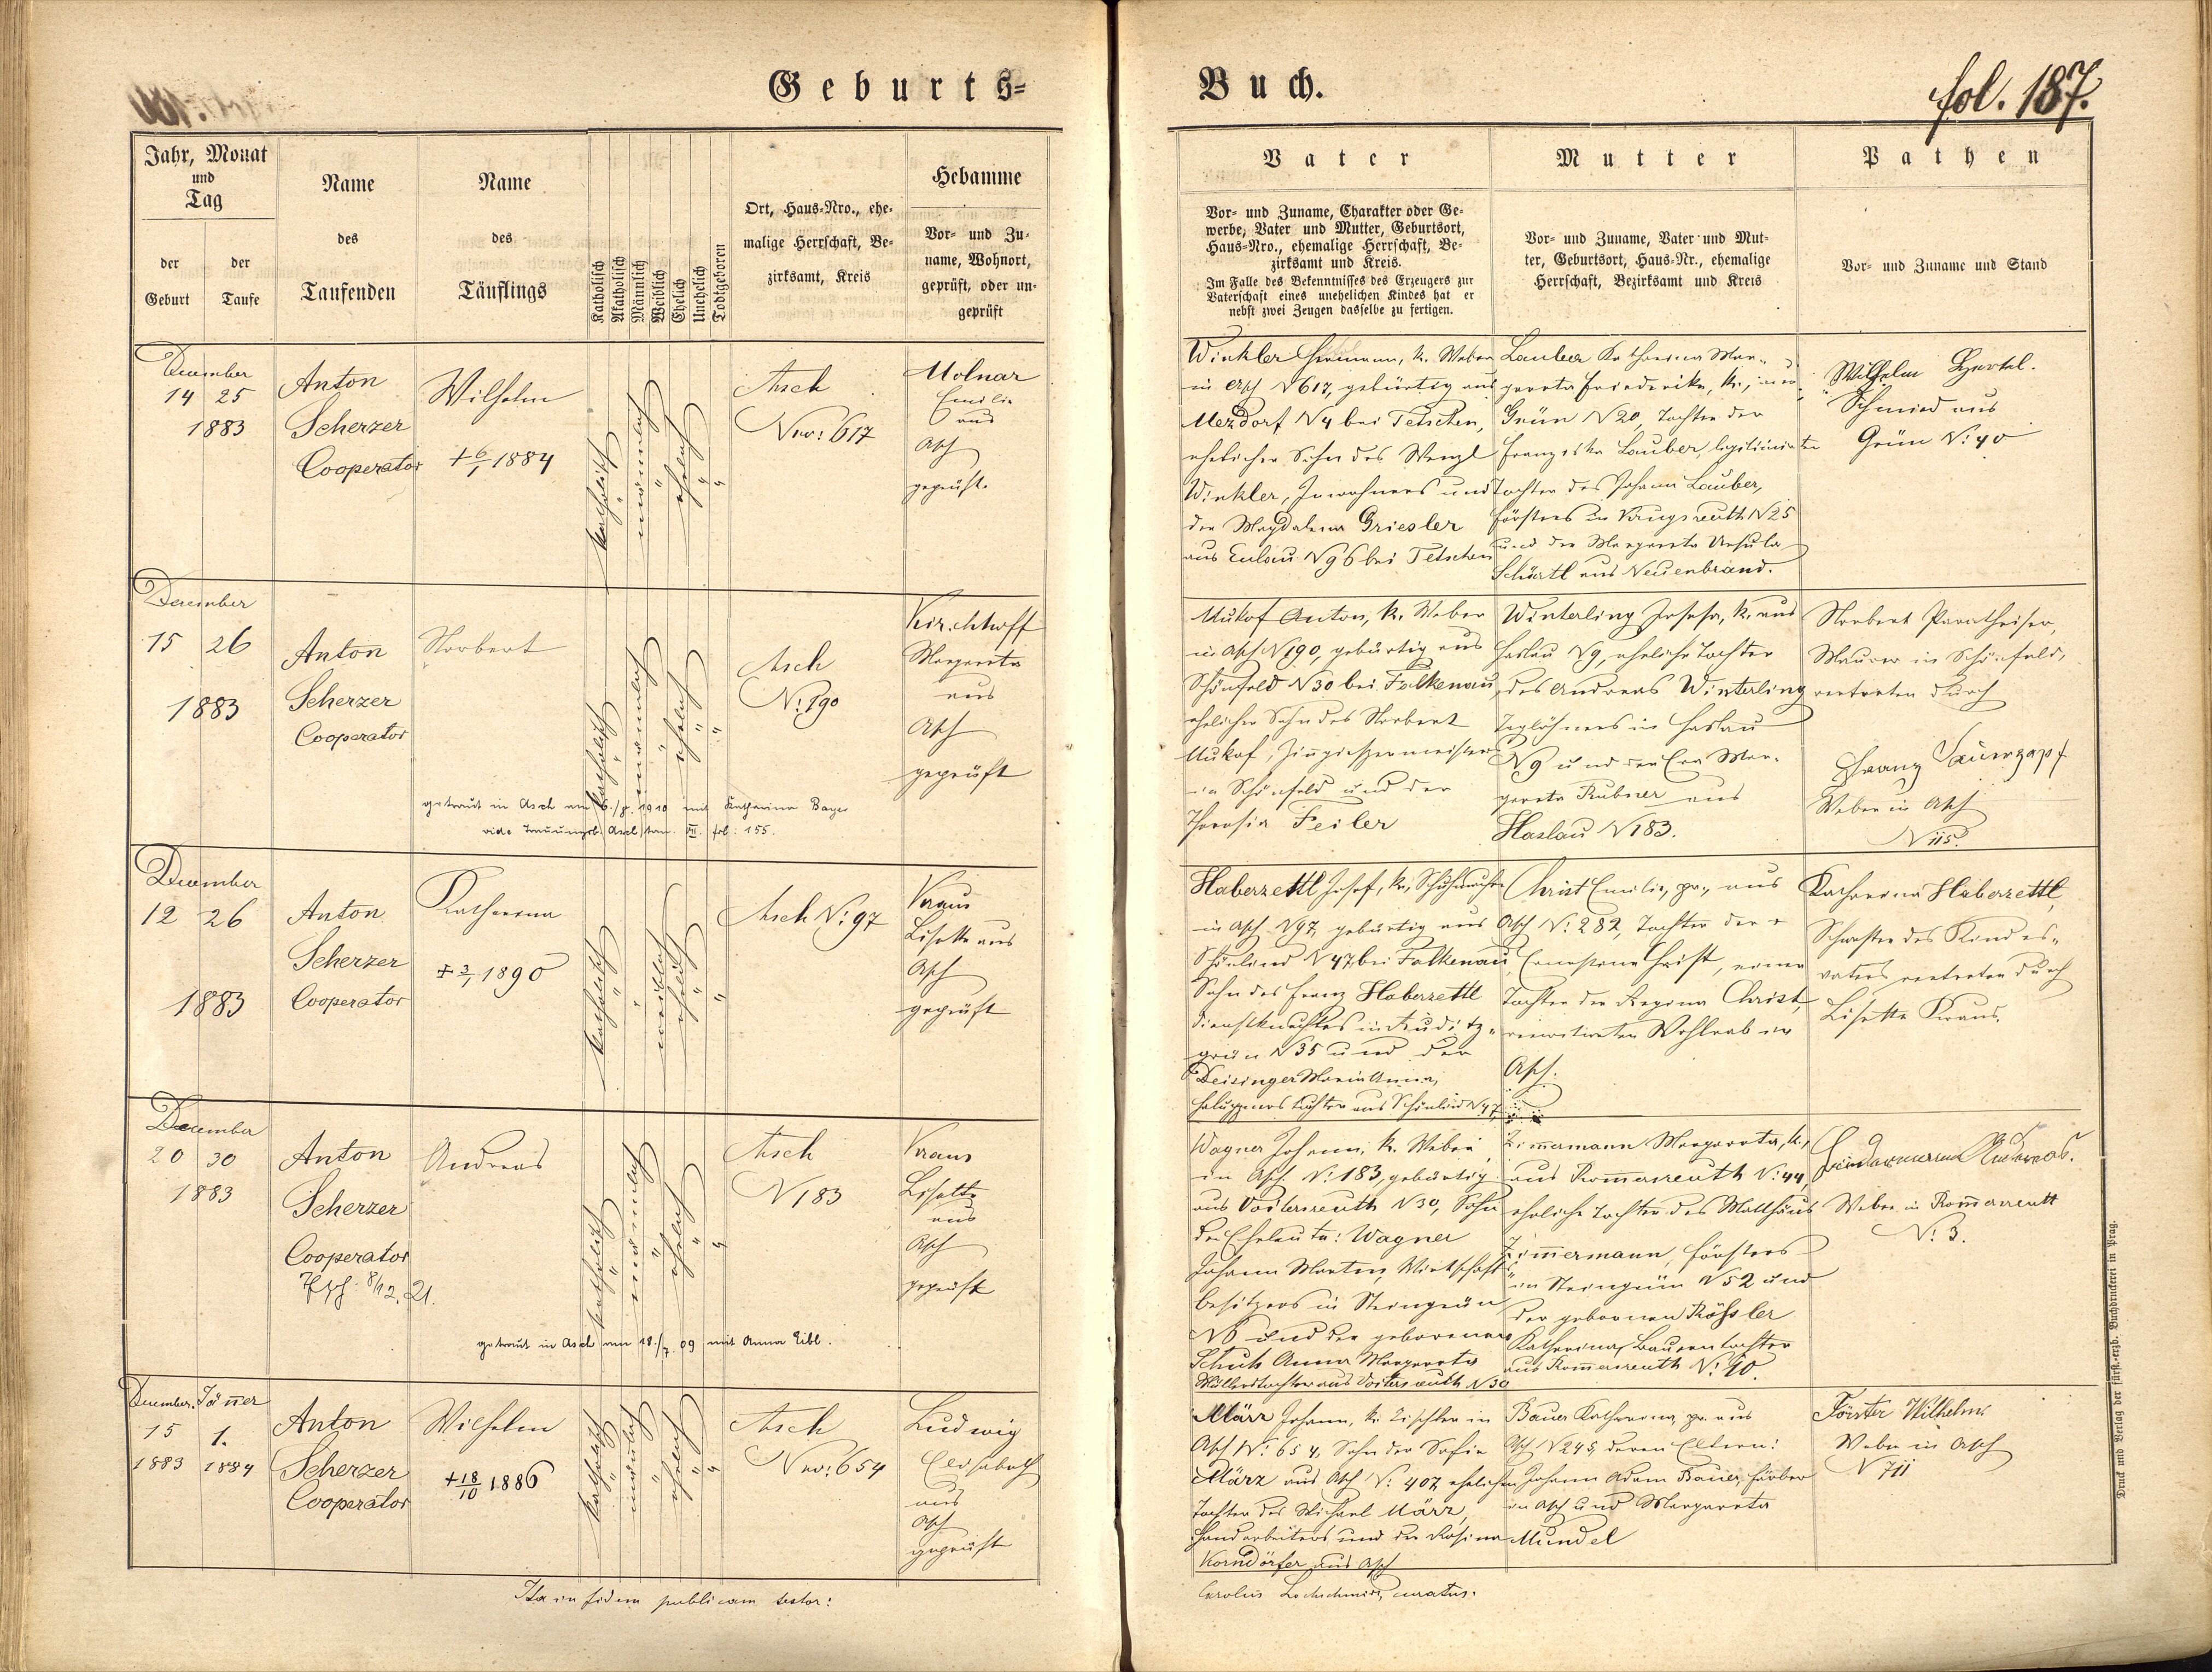 Geburts=
Buch.
fol. 187.
Jahr, Monat
und
Tag
der
Geburt
der
Taufe
Name
des
Taufenden
Name
des
Täuflings
Katholisch
Akatholisch
Männlich
Weiblich
Ehelich
Unehelich
Todtgeboren
Ort, Haus=Nro., ehe=
malige Herrschaft, Be=
zirksamt, Kreis
Hebamme
Vor= und Zu=
name, Wohnort,
geprüft, oder un=
geprüft
Vater
Vor= und Zuname, Charakter oder Ge=
werbe, Vater und Mutter, Geburtsort,
Haus=Nro., ehemalige Herrschaft, Be=
zirksamt und Kreis.
Im Falle des Bekenntnisses des Erzeugers zur
Vaterschaft eines unehelichen Kindes hat er
nebst zwei Zeugen dasselbe zu fertigen.
Mutter
Vor= und Zuname, Vater und Mut=
ter, Geburtsort, Haus=Nr., ehemalige
Herrschaft, Bezirksamt und Kreis
Pathen
Vor= und Zuname und Stand
December
14 25
1883
Anton
Scherzer
Cooperator
Wilhelm
+ 6/1 1884
katholisch
männlich
ehelich
Asch
Nro: 617
Molnar
Emilie
aus
Asch
geprüft.
Winkler Hermann, k. Weber
in Asch N 617, gebürtig aus
Merzdorf N 4 bei Tetschen,
ehelicher Sohn des Wenzl
Winkler, Inwohners und
der Magdalena Griesler
aus Eulau N 96 bei Tetschen
Lauber Katharina Mar=
gareta Friederike, k., aus
Grün N 20, Tochter der
Franziska Lauber, legitimierten
Tochter des Johann Lauber,
Försters in Krugsreuth N 25
und der Margareta Ursula
Schürtl aus Neuenbrand.
Wilhelm Hertel.
Schmied aus
Grün N: 40
December
15 26
1883
Anton
Scherzer
Cooperator
Norbert
katholisch
männlich
ehelich
Asch
N: 190
Kirchhoff
Margareta
aus
Asch
geprüft
getraut in Asch am 6./8. 1910 mit Katharina Bayer
vide Trauungsb. Asch tom. VII. fol: 155.
Mukof Anton, k. Weber
in Asch N 190, gebürtig aus
Schönfeld N 30 bei Falkenau,
ehelicher Sohn des Norbert
Mukof, Zinngießermeisters
in Schönfeld und der
Theresia Feiler
Winterling Josefa, k. aus
Haslau N 9, eheliche Tochter
des Andreas Winterling
Taglöhners in Haslau
N 9 und der Eva Mar=
gareta Rubner aus
Haslau N 183.
Norbert Paratheiser,
Maurer in Schönfeld,
vertreten durch
Franz Sauerzapf
Weber in Asch
N 115
December
12 26
1883
Anton
Scherzer
Cooperator
Katharina
+ 3/1 1890
katholisch
weiblich
ehelich
Asch N: 97
Kraus
Lisette aus
Asch
geprüft
Haberzettl Josef, k., Schuhmacher
in Asch N 97, gebürtig aus
Schönlind N 47 bei Falkenau,
Sohn des Franz Haberzettl
Dienstknechtes in Kuditz=
grün N 35 und der
Deisinger Maria Anna,
Häuslers Tochter aus Schönlind N 47
Christ Emilie, pr., aus
Asch N: 282, Tochter der +
Ernestine Christ, einer
Tochter der Regina Christ,
verwitweten Wohlrab in
Asch.
Katharina Haberzettl,
Schwester des Kindes=
vaters vertreten durch
Lisette Kraus.
December
20 30
1883
Anton
Scherzer
Cooperator
8/12. 21.
Andreas
katholisch
männlich
ehelich
Asch
N 183
Kraus
Lisette
aus
Asch
geprüft
getraut in Asch am 18./7. 09 mit Anna Eibl.
Wagner Johann, k. Weber
in Asch. N: 183, gebürtig
aus Voitersreuth N 30, Sohn
der Eheleute: Wagner
Johann Martin, Wirtschafts=
besitzers in Steingrün
N 6 und der geborenen
Schuh Anna Margareta
Müllerstochter aus Voitersreuth N 30
Zimmermann Margareta, k.,
aus Rommersreuth N: 44,
eheliche Tochter des Matthäus
Zimmermann, Försters
in Steingrün N 52 und
der geborenen Rößler
Katharina, Bauerntochter
aus Rommersreuth N: 40.
Andreas.
Weber in Rommersreuth
N: 3.
December. Jänner
15 1.
1883 1884
Anton
Scherzer
Cooperator
Wilhelm
+ 18/10 1886
katholisch
männlich
ehelich
Asch
Nro: 654
Ludwig
Elisabeth
aus
Asch
geprüft
März Johann, k. Tischler in
Asch N: 654, Sohn der Sofie
März aus Asch N: 407, ehelichen
Tochter des Michael März,
Handarbeiters und der Rosina
Korndörfer aus Asch
Bauer Katharina, pr. aus
Asch N 245, deren Eltern:
Johann Adam Bauer, Färber
in Asch und Margareta
Mundel
Förster Wilhelm
Weber in Asch
N 711
Ita in fidem publicam testor:
Carolus Lochschmidt, curatus.
Druck und Verlag der fürst.-erzb. Buchdruckerei in Prag.